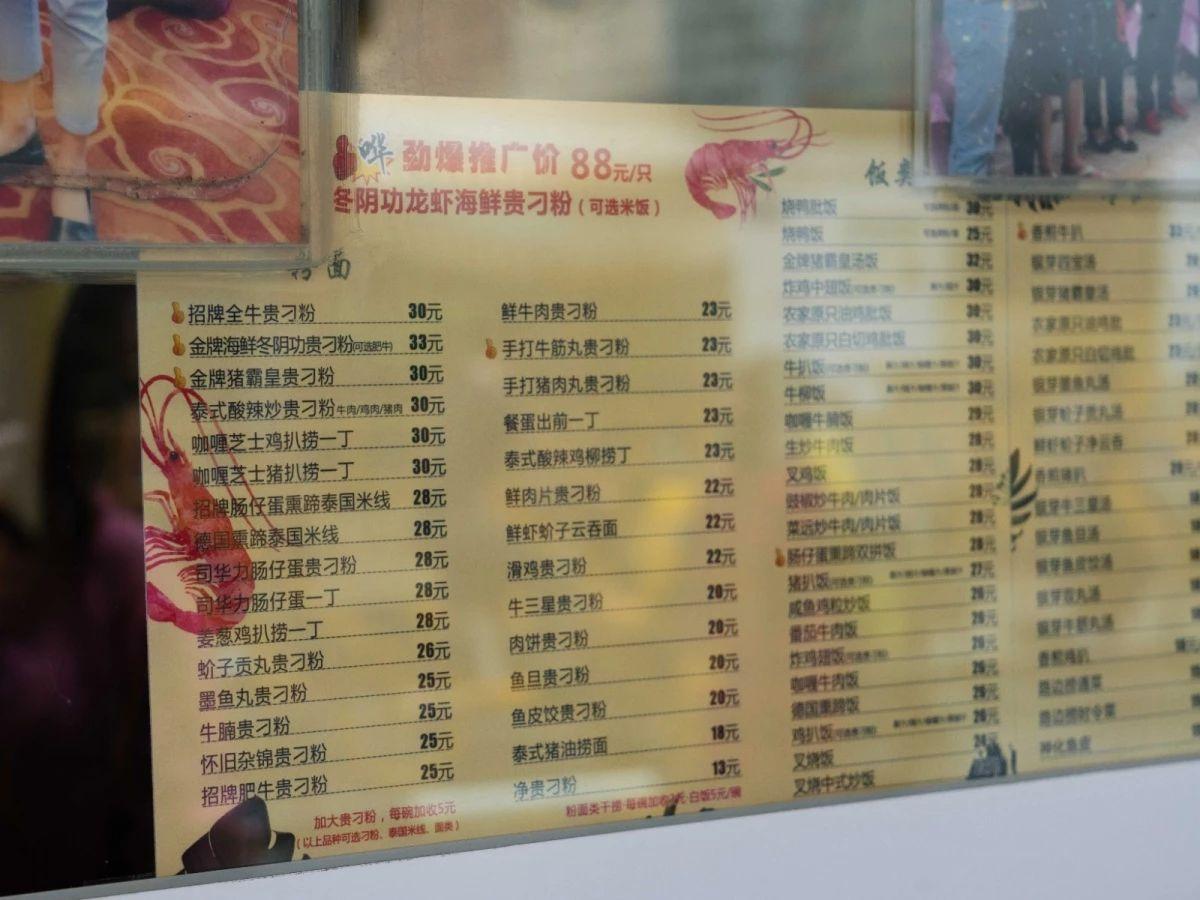 哗 劲爆推广价 88元/只
冬阴功龙虾海鲜贵刁粉（可选米饭）
面
招牌全牛贵刁粉 30元
金牌海鲜冬阴功贵刁粉(可选肥牛) 33元
金牌猪霸皇贵刁粉 30元
泰式酸辣炒贵刁粉 牛肉/鸡肉/猪肉 30元
咖喱芝士鸡扒捞一丁 30元
咖喱芝士猪扒捞一丁 30元
招牌肠仔蛋熏蹄泰国米线 28元
德国熏蹄泰国米线 28元
司华力肠仔蛋贵刁粉 28元
司华力肠仔蛋一丁 28元
姜葱鸡扒捞一丁 28元
蚧子贡丸贵刁粉 26元
墨鱼丸贵刁粉 25元
牛腩贵刁粉 25元
怀旧杂锦贵刁粉 25元
招牌肥牛贵刁粉 25元
加大贵刁粉，每碗加收5元
（以上品种可选刁粉、泰国米线、面类）
鲜牛肉贵刁粉 23元
手打牛筋丸贵刁粉 23元
手打猪肉丸贵刁粉 23元
餐蛋出前一丁 23元
泰式酸辣鸡柳捞丁 23元
鲜肉片贵刁粉 22元
鲜虾蚧子云吞面 22元
滑鸡贵刁粉 22元
牛三星贵刁粉 20元
肉饼贵刁粉 20元
鱼旦贵刁粉 20元
鱼皮饺贵刁粉 20元
泰式猪油捞面 18元
净贵刁粉 13元
粉面类干捞·每碗加收2元·白饭5元/碗
饭类
烧鸭肶饭 30元
烧鸭饭 25元
金牌猪霸皇汤饭 32元
炸鸡中翅饭 30元
农家原只油鸡肶饭 30元
农家原只白切鸡肶饭 30元
牛扒饭 30元
牛柳饭 30元
咖喱牛腩饭 29元
生炒牛肉饭 28元
叉鸡饭 28元
豉椒炒牛肉/肉片饭 28元
菜远炒牛肉/肉片饭 28元
肠仔蛋熏蹄双拼饭 28元
猪扒饭 27元
咸鱼鸡粒炒饭 26元
番茄牛肉饭 26元
炸鸡翅饭 26元
咖喱牛肉饭 26元
德国熏蹄饭 26元
鸡扒饭 26元
叉烧饭 24元
叉烧中式炒饭
香煎牛扒
银芽四宝汤
银芽猪霸皇汤
农家原只油鸡肶
农家原只白切鸡肶
银芽墨鱼丸汤
银芽蚧子贡丸汤
鲜虾蚧子净云吞
香煎猪扒
银芽牛三星汤
银芽鱼旦汤
银芽鱼皮饺汤
银芽双丸汤
银芽牛筋丸汤
香煎鸡扒
路边捞通菜
路边捞时令菜
神化鱼皮